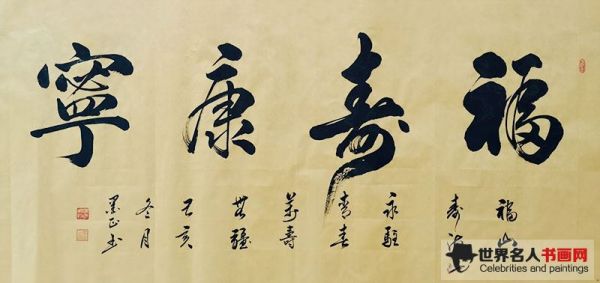 福壽康寧
福山
壽海
永駐
青春
萬壽
無疆
己亥
冬月
墨正书
世界名人书画网
Celebrities and paintings